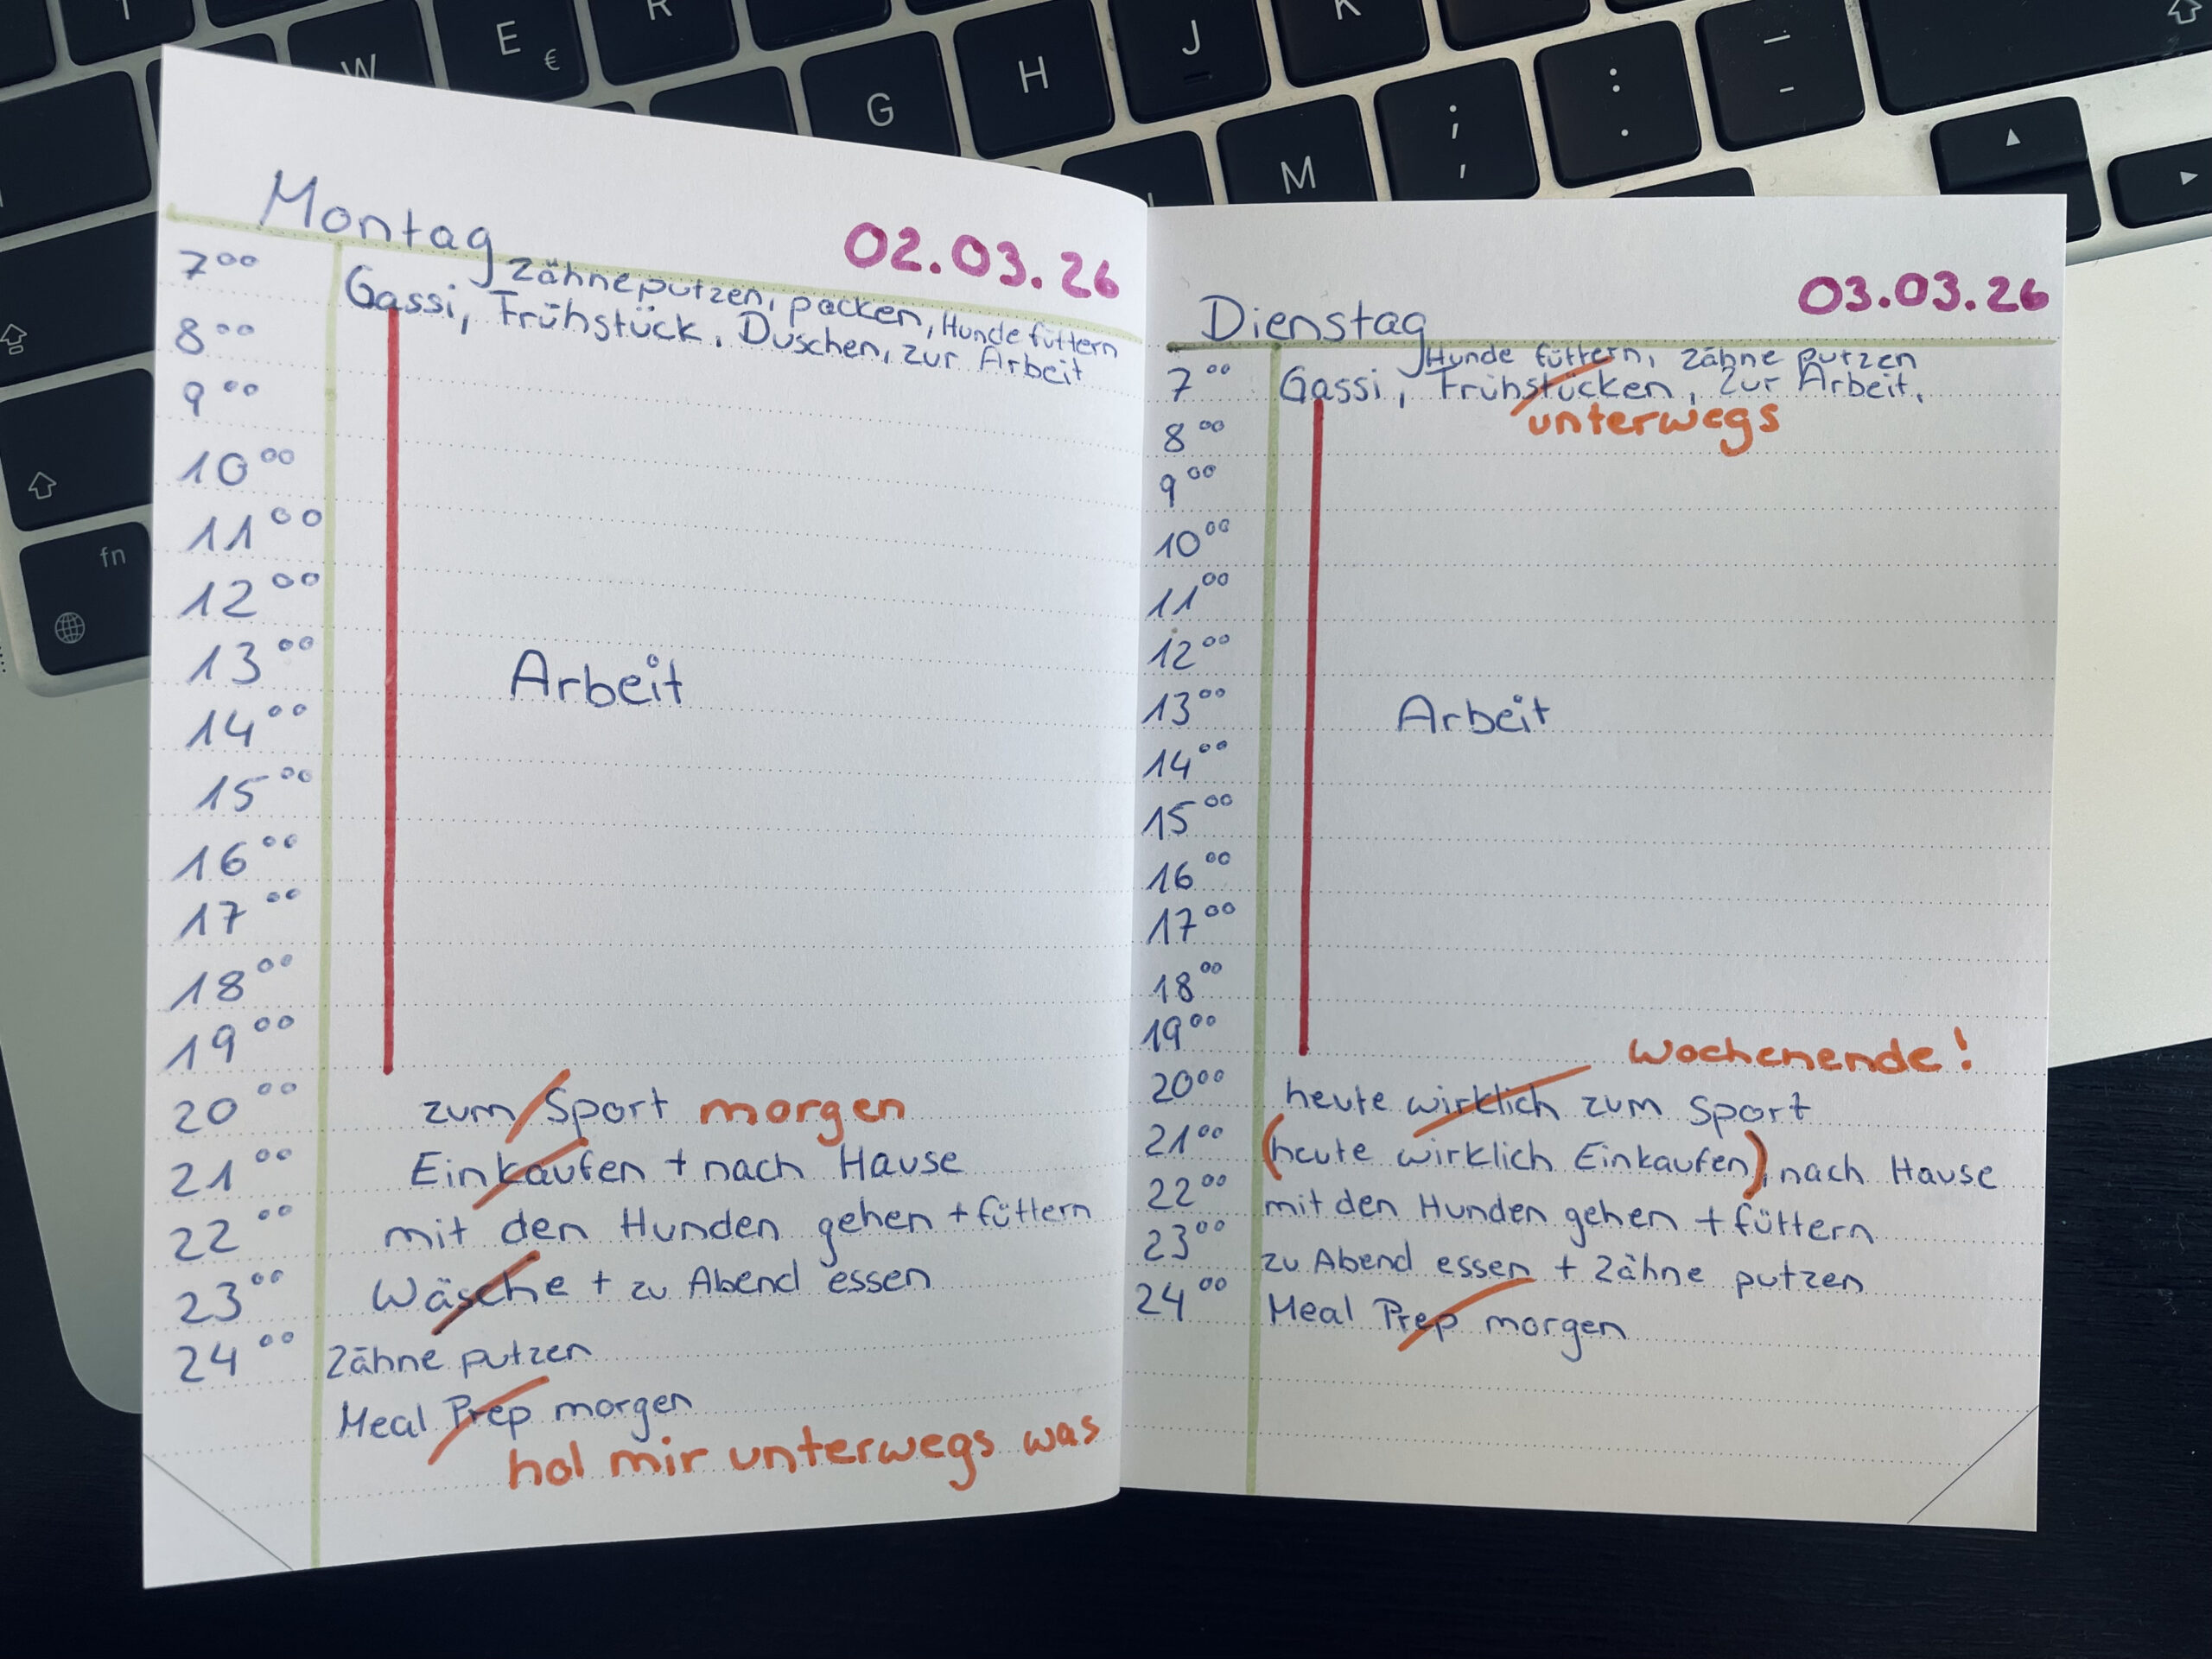 E €
R
W
G
H
J
K
M
;
,
:
.
–
-
fn
Montag 02.03.26
7⁰⁰ Zähneputzen, packen, Hunde füttern
Gassi, Frühstück, Duschen, zur Arbeit
8⁰⁰
9⁰⁰
10⁰⁰
11⁰⁰
12⁰⁰
13⁰⁰ Arbeit
14⁰⁰
15⁰⁰
16⁰⁰
17⁰⁰
18⁰⁰
19⁰⁰
20⁰⁰ zum Sport morgen
21⁰⁰ Einkaufen + nach Hause
22⁰⁰ mit den Hunden gehen + füttern
23⁰⁰ Wäsche + zu Abend essen
24⁰⁰ Zähne putzen
Meal Prep morgen
hol mir unterwegs was
Dienstag 03.03.26
Hunde füttern, Zähne putzen
7⁰⁰ Gassi, Frühstücken, zur Arbeit,
unterwegs
8⁰⁰
9⁰⁰
10⁰⁰
11⁰⁰
12⁰⁰
13⁰⁰ Arbeit
14⁰⁰
15⁰⁰
16⁰⁰
17⁰⁰
18⁰⁰
19⁰⁰
Wochenende!
20⁰⁰ heute wirklich zum Sport
21⁰⁰ (heute wirklich Einkaufen), nach Hause
22⁰⁰ mit den Hunden gehen + füttern
23⁰⁰ zu Abend essen + Zähne putzen
24⁰⁰ Meal Prep morgen